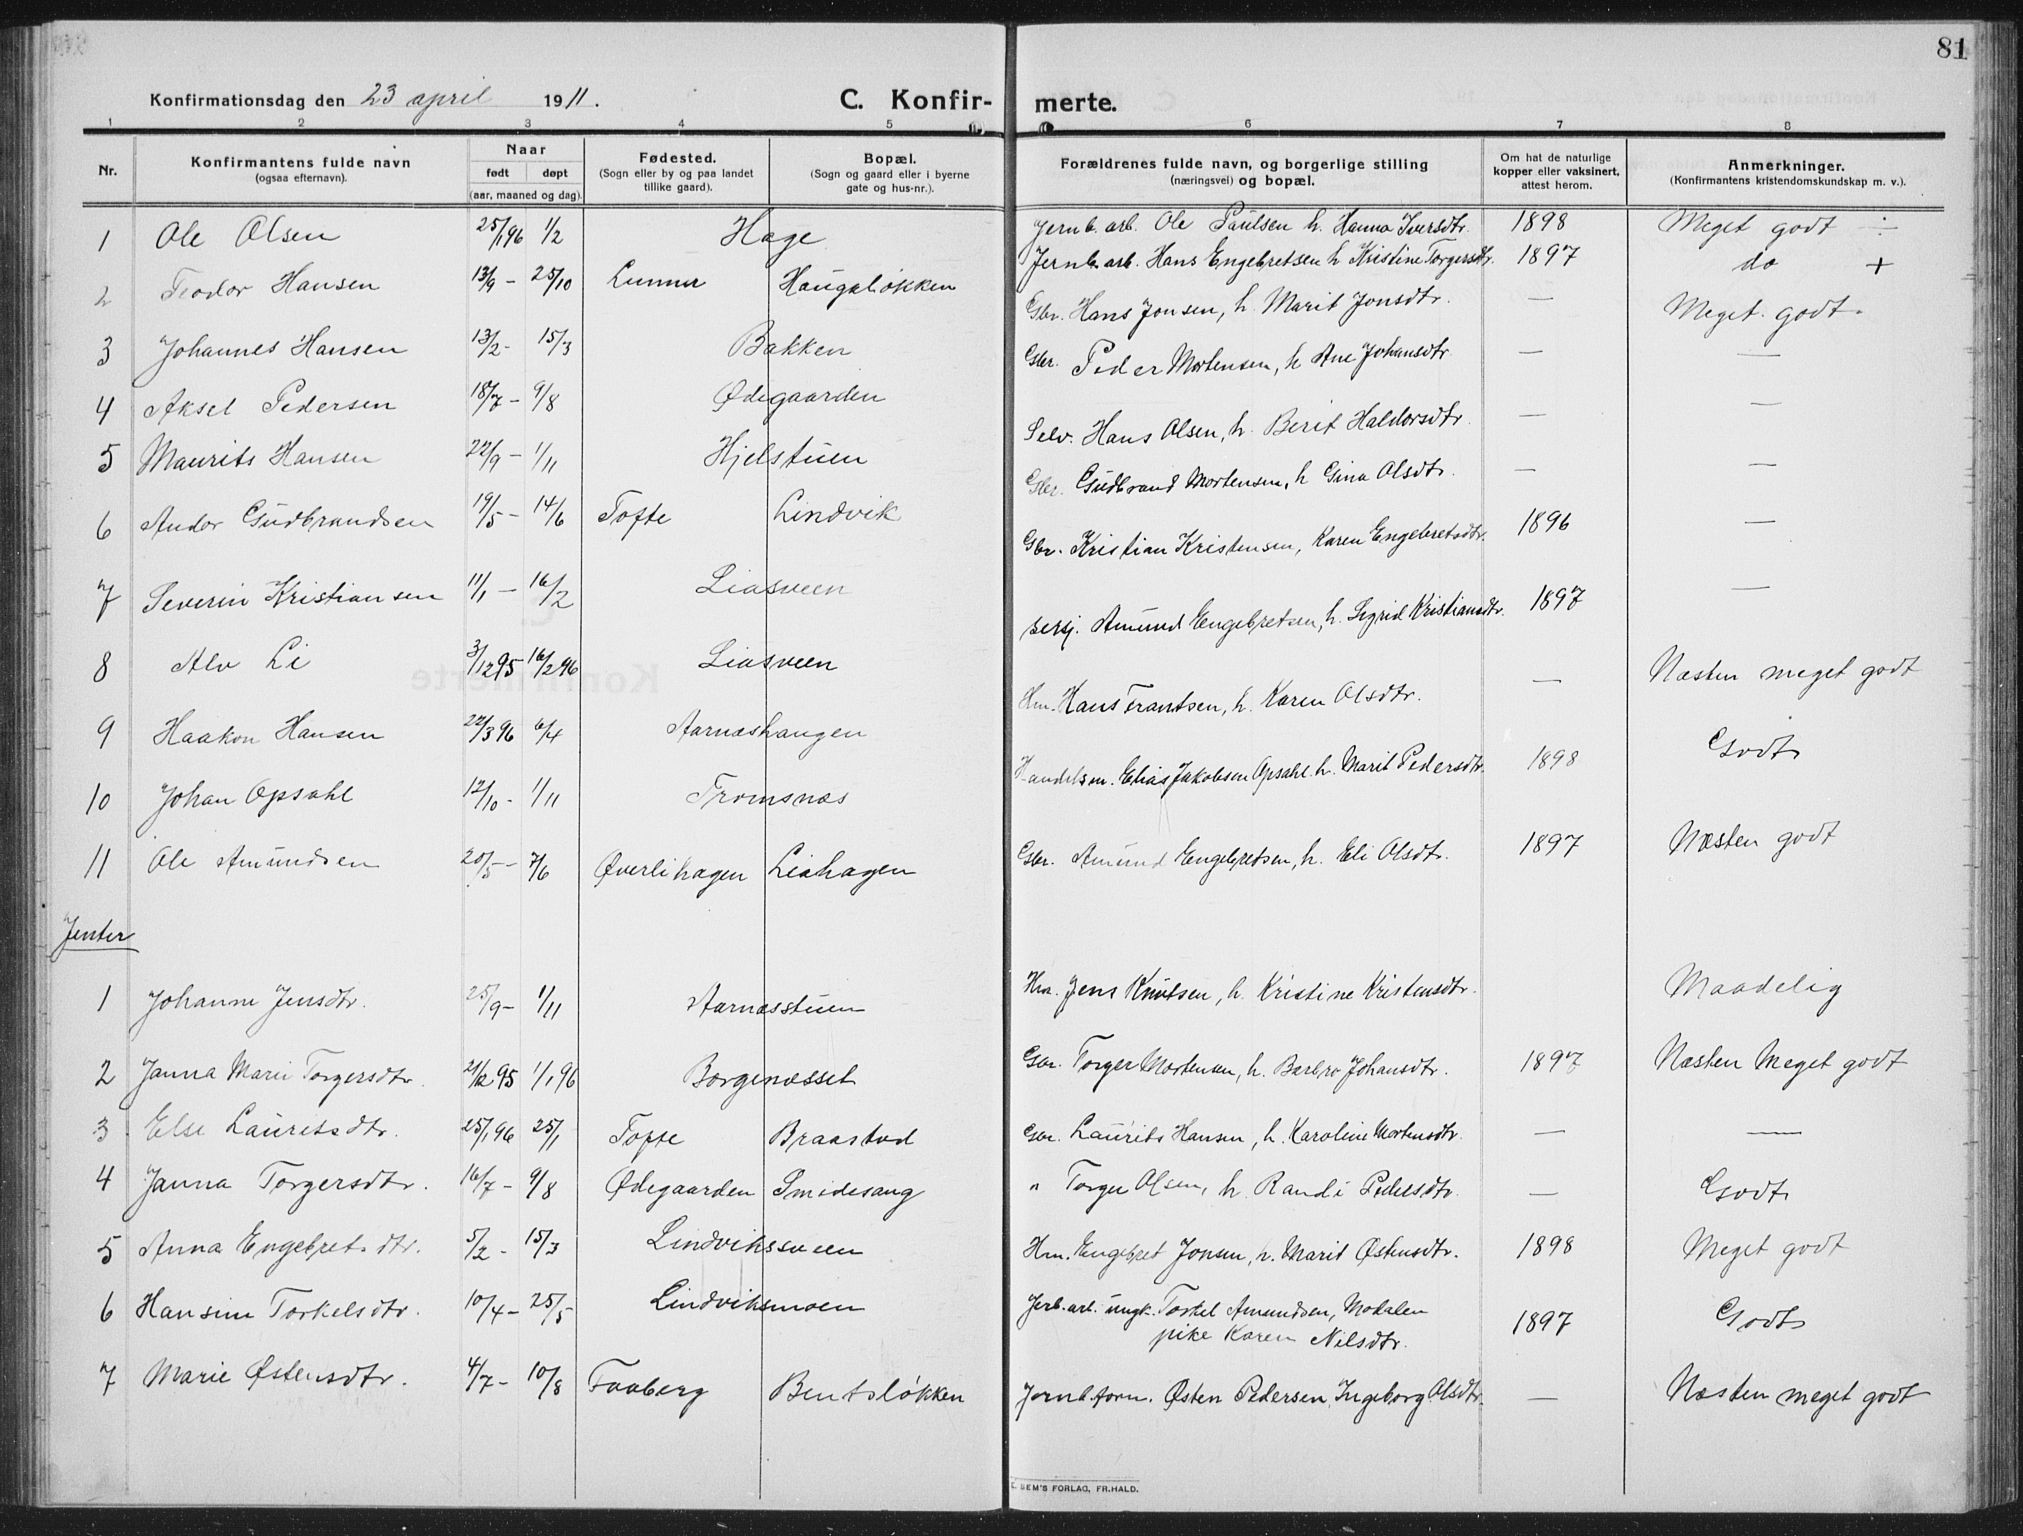 81
Konfirmationsdag den 23 april 1911.
C. Konfirmerte.
1 2 3 4 5 6 7 8
Nr.
Konfirmantens fulde navn
(ogsaa efternavn).
Naar
født
døpt
(aar, maaned og dag).
Fødested.
(Sogn eller by og paa landet
tillike gaard).
Bopæl.
(Sogn og gaard eller i byerne
gate og hus-nr.).
Forældrenes fulde navn, og borgerlige stilling
(næringsvei) og bopæl.
Om hat de naturlige
kopper eller vaksinert,
attest herom.
Anmerkninger.
(Konfirmantens kristendomskundskap m. v.).
1 Ole Olsen 25/1 96 1/2 Hage Jernb. arb. Ole Paulsen h. Hanna Iversdtr. 1898 Meget godt ÷
2 Teodor Hansen 13/9 - 25/10 Lunner Haugsløkken Jernb. arb. Hans Engebretsen h Kristine Torgersdtr. 1897 do +
3 Johannes Hansen 13/2 - 15/3 Bakken Gbr. Hans Jonsen, h. Marit Jonsdtr. — Meget godt.
4 Aksel Pedersen 18/7 - 9/8 Ødegaarden Gbr. Peder Mortensen, h Ane Johansdtr. — —
5 Maurits Hansen 22/9 - 1/11 Hjelstuen Selv. Hans Olsen, h. Berit Haldorsdtr. — —
6 Andor Gudbrandsen 19/5 - 14/6 Tofte Lindvik Gbr. Gudbrand Mortensen, h Gina Olsdtr. — —
7 Severin Kristiansen 11/1 - 16/2 Liasveen Gbr. Kristian Kristensen, Karen Engebretsdtr. 1896 —
8 Alv Li 3/12 95 16/2 96 Liasveen Amund Engebretsen, h. Sigrid Kristiansdtr. 1897 —
9 Haakon Hansen 22/3 96 6/4 Aarnæshaugen Hm. Hans Frantsen, h. Karen Olsdtr. — Næsten meget godt
10 Johan Opsahl 12/10 - 1/11 Tromsnæs Handelsm. Elias Jakobsen Opsahl h. Marit Pedersdtr. 1898 Godt
11 Ole Amundsen 20/5 - 7/6 Øverlihagen Liahagen Gbr. Amund Engebretsen, h. Eli Olsdtr. 1897 Næsten godt
Jenter
1 Johanne Jensdtr. 25/9 - 1/11 Aarnæsstuen Hm. Jens Knutsen, h. Kristine Kristensdtr. Maadelig
2 Janna Marie Torgersdtr. 21/12 95 1/1 96 Borgenæsset Gbr. Torger Mortensen, h. Barbro Johansdtr. 1897 Næsten Meget godt
3 Else Lauritsdtr. 25/1 96 25/1 Tofte Braastad Gbr. Laurits Hansen, h. Karoline Mortensdtr. — —
4 Janna Torgersdtr. 16/7 - 9/8 Ødegaarden Smidesang " Torger Olsen, h. Randi Pedersdtr. — Godt
5 Anna Engebretsdtr. 5/2 - 15/3 Lindvikssveen Hm. Engebret Jonsen, h. Marit Østensdtr. 1898 Meget godt
6 Hansine Torkelsdtr. 10/4 - 25/5 Lindviksmoen Jerb. arb. ungk. Torkel Amundsen, Modalen
pike Karen Nilsdtr. 1897 Godt
7 Marie Østensdtr. 4/7 - 10/8 Faaberg Bentsløkken Jernb. form. Østen Pedersen, Ingeborg Olsdtr. — Næsten meget godt
SEM'S FORLAG, FR.HALD.